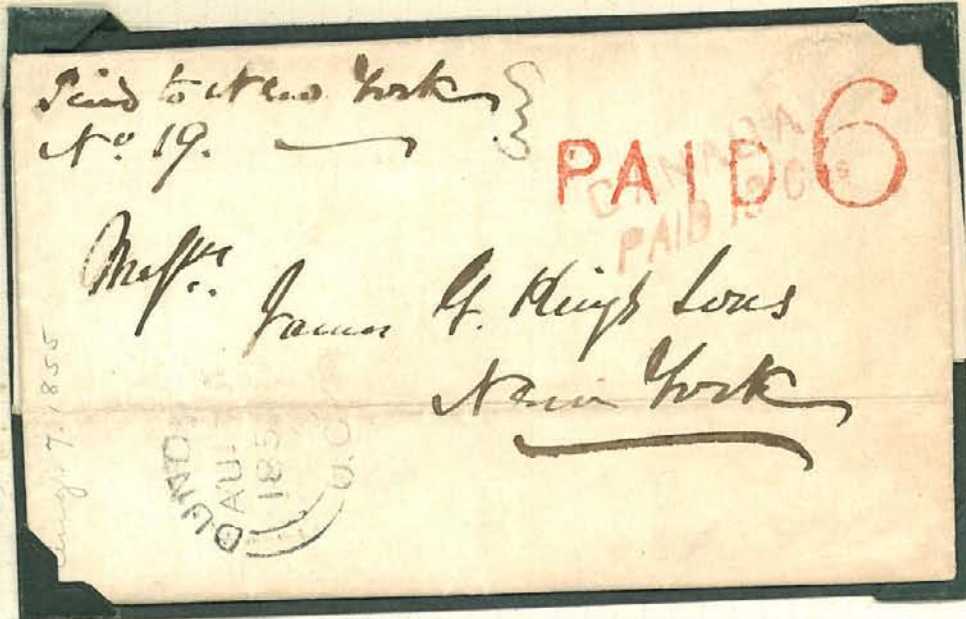 Paid to New York
No. 19.
PAID 6
CANADA
PAID 10 Cts
Messrs.
James G. King & Sons
New York
DUND
AU
185
U.C.
Aug. 7. 1855